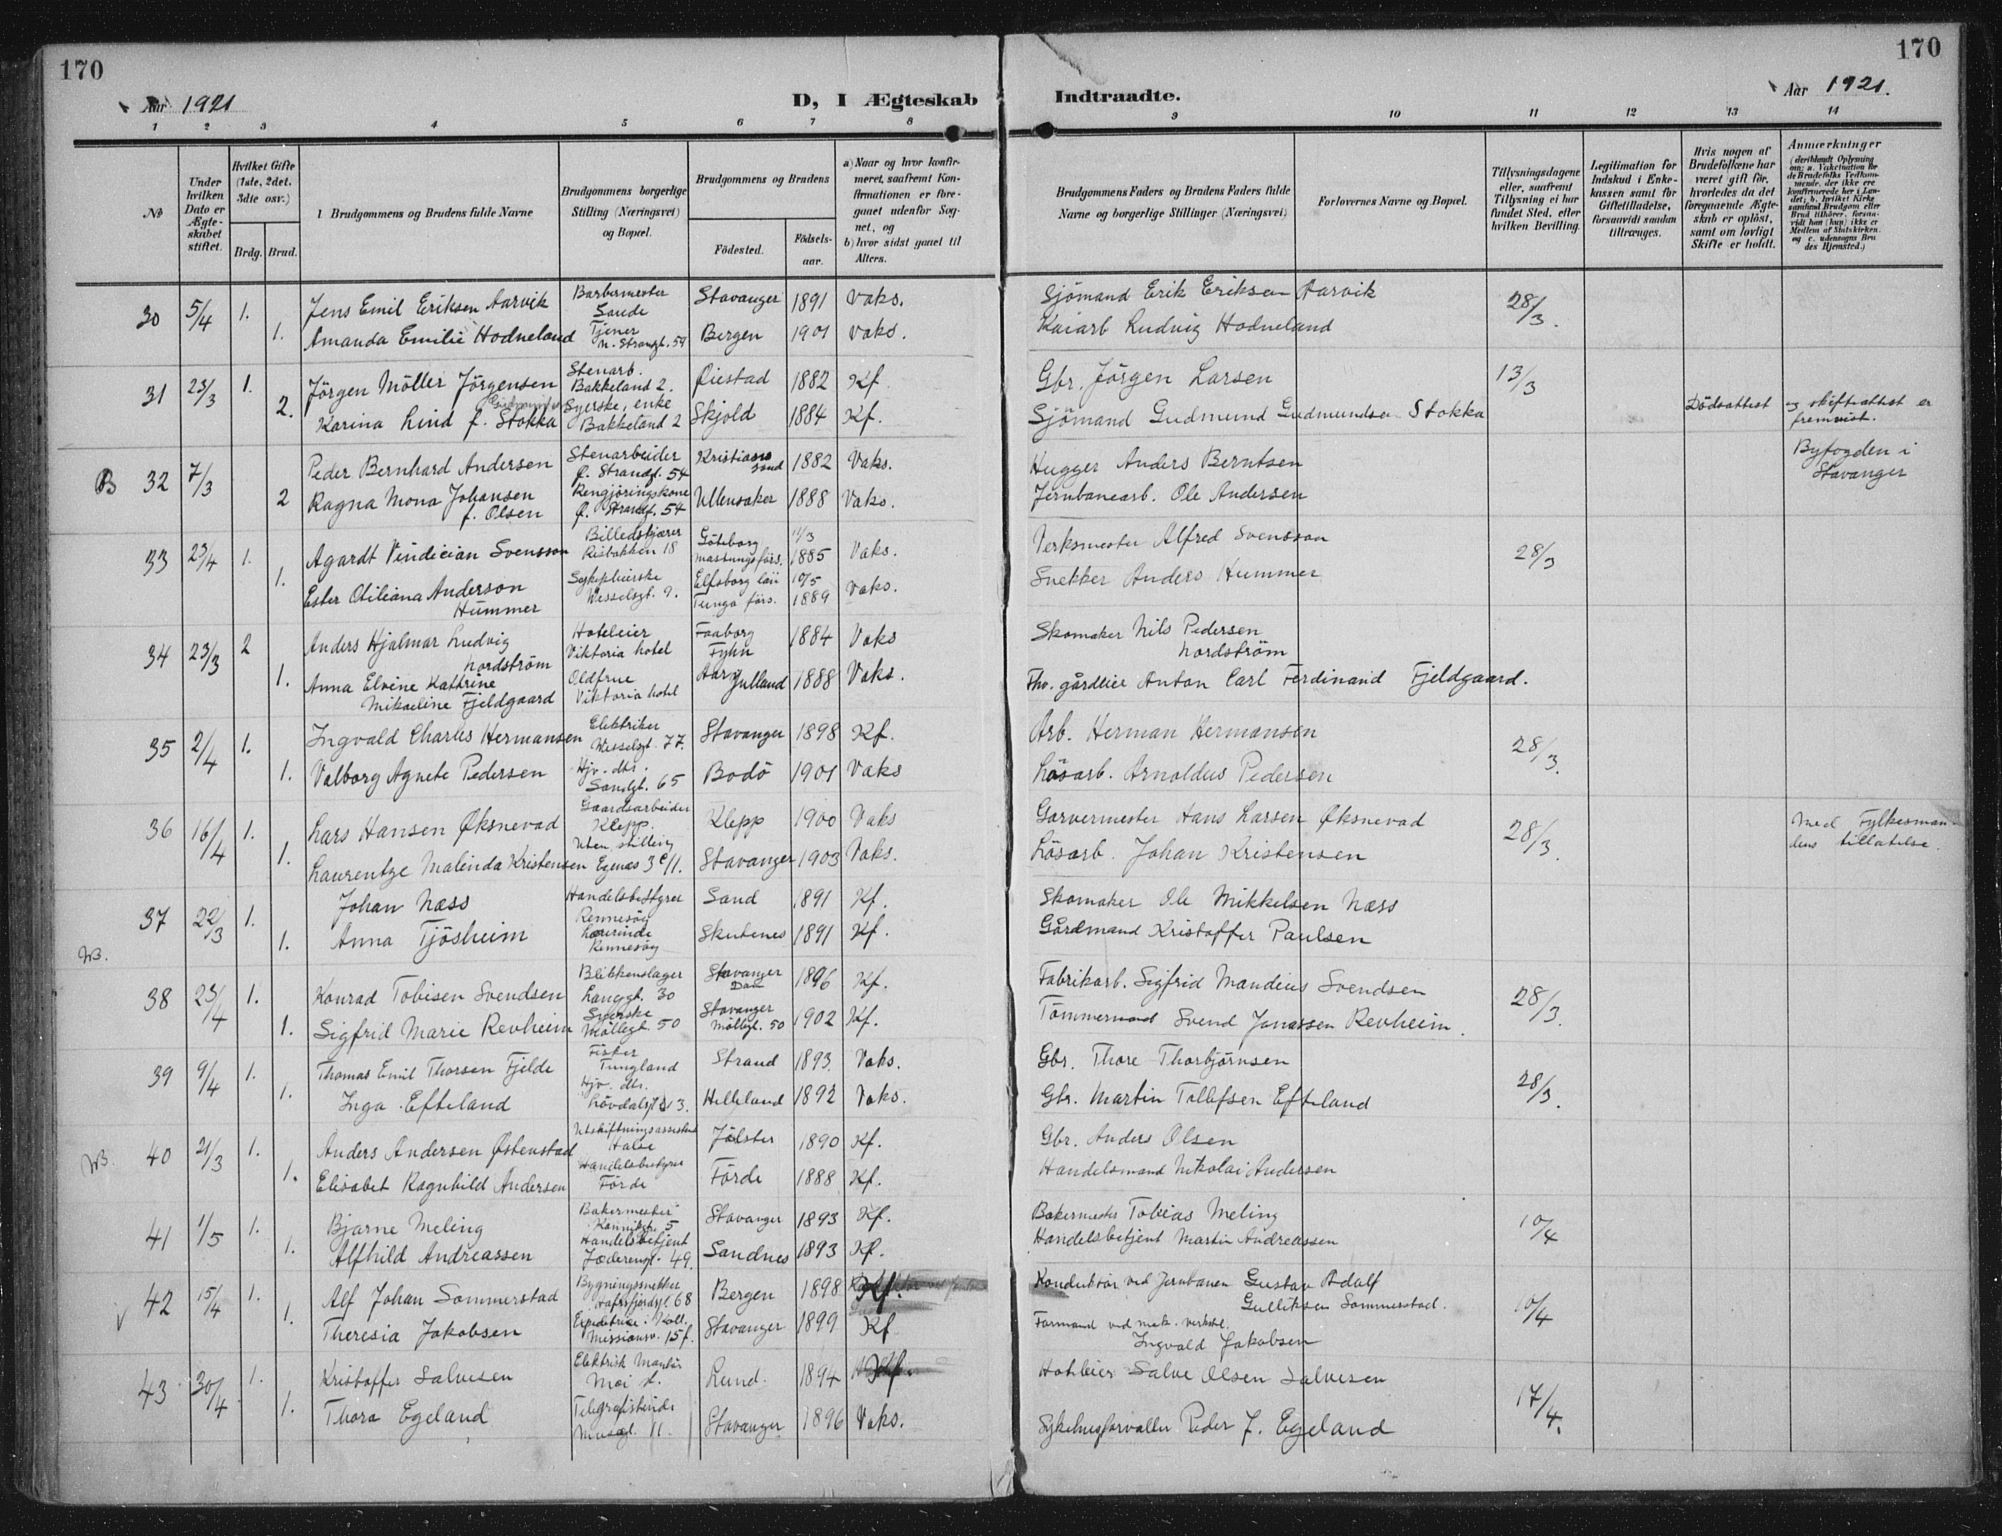 170
170
Aar 1921
D, I Ægteskab Indtraadte.
Aar 1921.
1 2 3 4 5 6 7 8 9 10 11 12 13 14
№
Under hvilken Dato er Ægteskabet stiftet.
Hvilket Gifte (1ste, 2det, 3dte osv.)
Brdg. Brud.
Brudgommens og Brudens fulde Navne
Brudgommens borgerlige Stilling (Næringsvei) og Bopæl.
Brudgommens og Brudens
Fødested. Fødselsaar.
a) Naar og hvor konfirmeret, saafremt Konfirmationen er foregaaet udenfor Sognet, og
b) hvor sidst gaaet til Alters.
Brudgommens Faders og Brudens Faders fulde Navne og borgerlige Stillinger (Næringsvei)
Forlovernes Navne og Bopæl.
Tillysningsdagene eller, saafremt Tillysning ei har fundet Sted, efter hvilken Bevilling.
Legitimation for Indskud i Enkekassen samt for Giftetilladelse, forsaavidt saadan tiltrænges.
Hvis nogen af Brudefolkene har været gift før, hvorledes da det foregaaende Ægteskab er opløst, samt om lovligt Skifte er holdt.
Anmærkninger
30 5/4 1. Jens Emil Eriksen Aarvik Barbermester Sande Stavanger 1891 Vaks. Sjömand Erik Eriksen Aarvik 28/3.
1. Amanda Emilie Hodneland Tjener N. Strandgt. 54 Bergen 1901 Vaks. Kaiarb Ludvig Hodneland
31 23/3 1. Jörgen Möller Jörgensen Stenarb. Bakkeland 2. Øiestad 1882 Kf. Gbr. Jörgen Larsen 13/3
2. Karina Lind f. Stokka Syerske, enke Bakkeland 2 Skjold 1884 Kf. Sjömand Gudmund Gudmundsen Stokka Dödsattest og skifteattest er fremvist.
B 32 7/3 Peder Bernhard Andersen Stenarbeider Ø. Strandg. 54 Kristianssand 1882 Vaks. Hugger Anders Berntsen Byfogden i Stavanger
2 Ragna Mona Johansen f. Olsen Rengjöringskone Ø. Strandg. 54 Ullensaker 1888 Vaks. Jernbanearb. Ole Andersen
33 23/4 1. Agardt Vindician Svensson Billedskjærer Risbakken 18 Göteborg 11/3 1885 Vaks. Verksmester Alfred Svensson 28/3
1. Ester Otiliana Anderson Hummer Sykepleierske Wesselsgt. 9. Elfsborg län 10/5 1889 Vaks. Snekker Anders Hummer
34 23/3 2 Anders Hjalmar Ludvig Nordström Hoteleier Viktoria hotel Faaborg Fyhn 1884 Vaks Skomaker Nils Pedersen Nordström
1. Anna Elvine Kathrine Mikaeline Fjeldgaard Oldfrue Viktoria hotel Jylland 1888 Vaks. Fhv. gårdeier Anton Carl Ferdinand Fjeldgaard.
35 2/4 1. Ingvald Charles Hermansen Elektriker Wesselsgt. 77. Stavanger 1898 Kf. Arb. Herman Hermansen 28/3.
1. Valborg Agnete Pedersen Hjv. dtr. Sandgt. 65 Bodö 1901 Vaks Lösarb. Arnoldus Pedersen
36 16/4 1. Lars Hansen Øksnevad Gaardsarbeider Klepp. Klepp 1900 Vaks Garvermester Hans Larsen Øksnevad 28/3. Med Fylkesmandens tillatelse.
1. Laurentze Malinda Kristensen Uten stilling Egenæs 3 Stavanger 1903 Vaks. Lösarb. Johan Kristensen
37 22/3 1. Johan Næss Handelsbestyrer Rennesöy Sand 1891 Kf. Skomaker Ole Mikkelsen Næss
1. Anna Tjösheim Lærerinde Rennesöy Skutenes 1891 Kf. Gårdmand Kristoffer Paulsen
38 23/4 1. Konrad Tobisen Svendsen Blikkenslager Langgt. 30 Stavanger 1896 Kf. Fabrikarb. Sigfrid Mandius Svendsen 28/3.
1. Sigfrid Marie Revheim Syerske Möllegt. 50 Stavanger Möllegt. 50 1902 Kf. Tömmermand Svend Jonassen Revheim.
39 9/4 1. Thomas Emil Thorsen Fjelde Fisker Tungland Strand 1893. Vaks. Gbr. Thore Thorbjörnsen 28/3.
1. Inga Efteland Hjv. dtr. Helleland 1892 Vaks. Gbr. Martin Tollefsen Efteland
40 21/3 1. Anders Andersen Østenstad Utskiftningsassistent Jölster 1890 Kf. Gbr. Anders Olsen
1. Elisabet Ragnhild Andersen Handelsbestyrer Förde Förde 1888 Kf. Handelsmand Nikolai Andersen
41 1/5 1. Bjarne Meling Bakermester 5 Stavanger 1893 Kf. Bakermester Tobias Meling 10/4
1. Alfhild Andreassen Handelsbetjent Jæderengt. 49. Sandnes 1893 Kf. Handelsbetjent Martin Andreassen
42 15/4 1. Alf Johan Sommerstad Bygningssnekker Hafrsfjordgt. 68 Bergen 1898 Kf. Konduktör ved Jernbanen Gustav Adolf Gulliksen Sommerstad. 10/4
1. Theresia Jakobsen Missionsv. 15 f. Stavanger 1899 Kf Formand ved mek. verksted. Ingvald Jakobsen
43 30/4 1. Kristoffer Salvesen Elektrisk Montör Moi Lund. 1894 Kf. Hoteleier Salve Olsen Salvesen 17/4.
1. Thora Egeland Telegrafistinde 11. Stavanger 1896 Vaks. Sykehusforvalter Peder J. Egeland